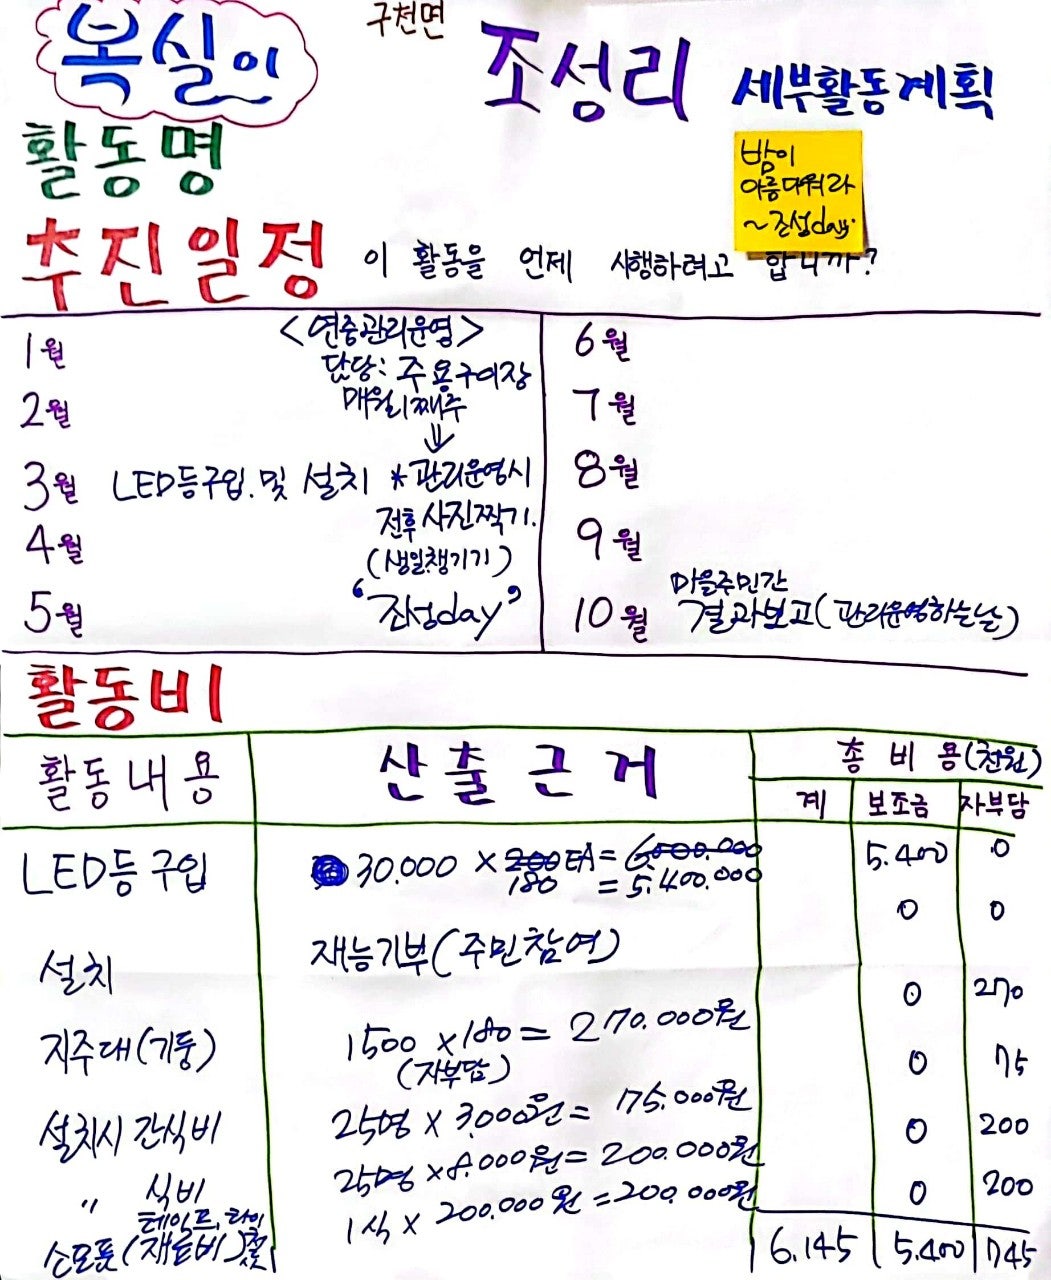 복실이
구천면
조성리 세부활동계획
활동명
밤이
아름다워라
~조성day.
추진일정 이 활동을 언제 시행하려고 합니까?
1월
<연중관리운영>
담당: 주용구이장
2월
매월1째주
3월 LED등구입.및 설치 *관리운영시
4월 전후사진찍기.
(생일챙기기)
5월 "조성day"
6월
7월
8월
9월
마을주민간
10월 결과보고(관리운영하는날)
활동비
활동내용 산출근거 총비용(천원)
계 보조금 자부담
LED등 구입 30.000 × 200EA = 6.000.000 5.400 0
180 = 5.400.000
설치 재능기부(주민참여) 0 0
지주대(기둥) 1500 ×180 = 270.000원 0 270
(자부담)
설치시 간식비 25명 × 3.000원 = 75.000원 0 75
" 식비 25명 ×8.000원 = 200.000원 0 200
테이프,타이
소모품(재료비) 1식 × 200.000원 = 200.000원 0 200
6.145 5.400 745